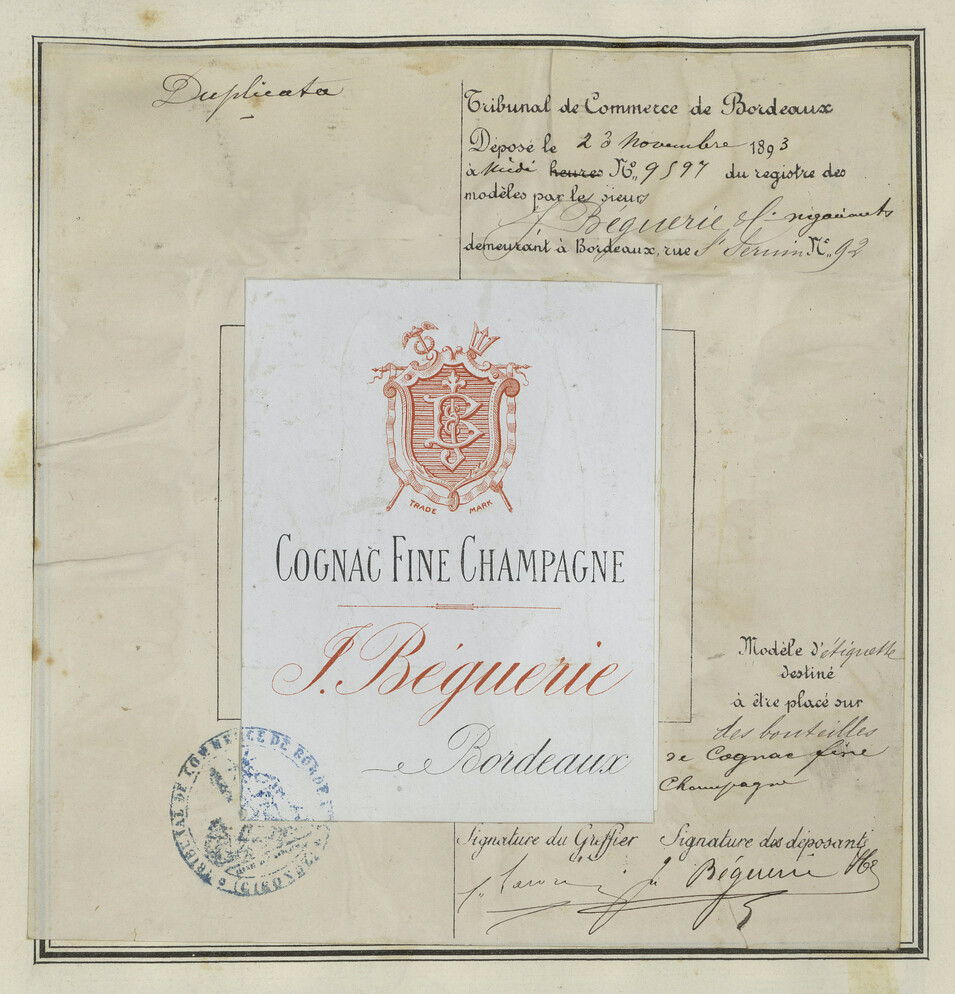 Duplicata
Tribunal de Commerce de Bordeaux
Déposé le 23 Novembre 1893
à Midi heures N° 9597 du registre des
modèles par les sieurs
J. Béguerie & Cie négociants
demeurant à Bordeaux, rue St Fernin N° 92
TRADE MARK
COGNAC FINE CHAMPAGNE
J. Béguerie
Bordeaux
Modèle d'étiquette
destiné
à être placé sur
des bouteilles
de Cognac fine
Champagne
TRIBUNAL DE COMMERCE DE BORDEAUX
Signature du Greffier Signature des déposants
J. Béguerie